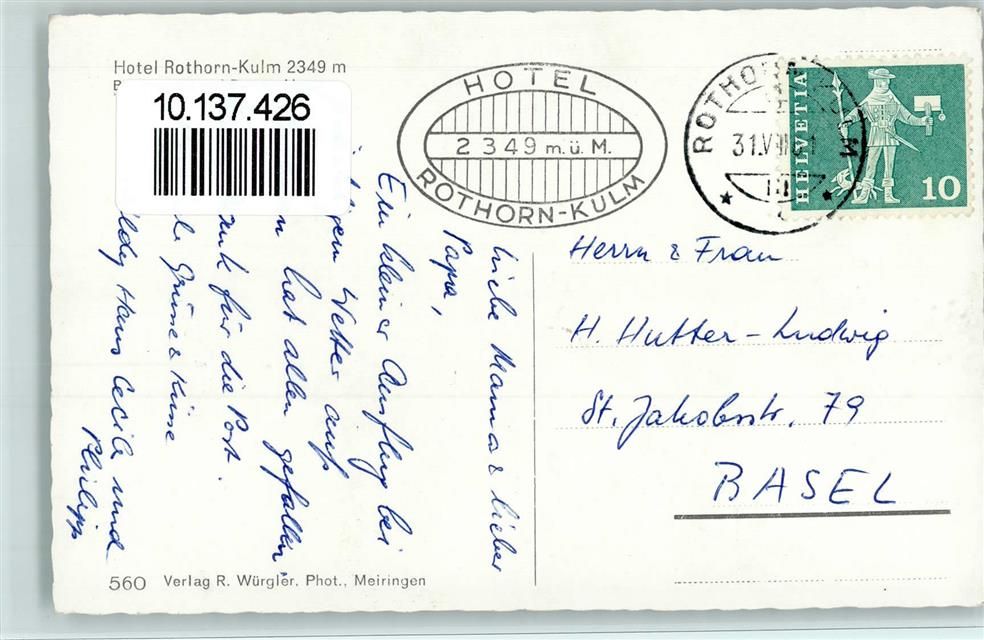 Hotel Rothorn-Kulm 2349 m
10.137.426
HOTEL
2349 m.ü.M.
ROTHORN-KULM
ROTHORN KULM
HELVETIA
10
Liebe Mama & lieber
Papa,
Ein kleiner Ausflug bei
Wetter aufs
hat allen gefallen.
für die Post.
Grüsse & Küsse
Hans Cecile und
Philipp
Herrn & Frau
H. Hutter-Ludwig
St. Jakobsstr. 79
BASEL
560 Verlag R. Würgler, Phot., Meiringen